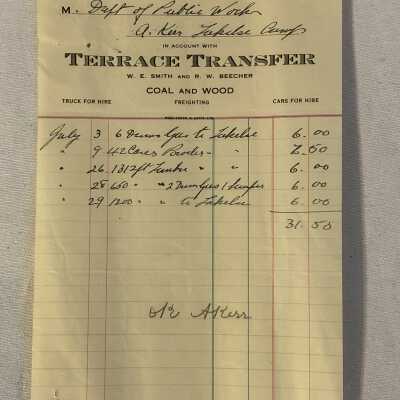 M. Dept of Public Works
A. Kerr Lakelse Camp
IN ACCOUNT WITH
TERRACE TRANSFER
W. E. SMITH AND R. W. BEECHER
COAL AND WOOD
TRUCK FOR HIRE FREIGHTING CARS FOR HIRE
July 3 6 Drums Gas to Lakelse 6.00
" 9 42 Cases Powder " " 7.50
" 26 1312 ft Lumber " " 6.00
" 28 650 " " 2 Drums Gas 1 6.00
" 29 1200 " " to Lakelse 6.00
31.50
OK AKerr